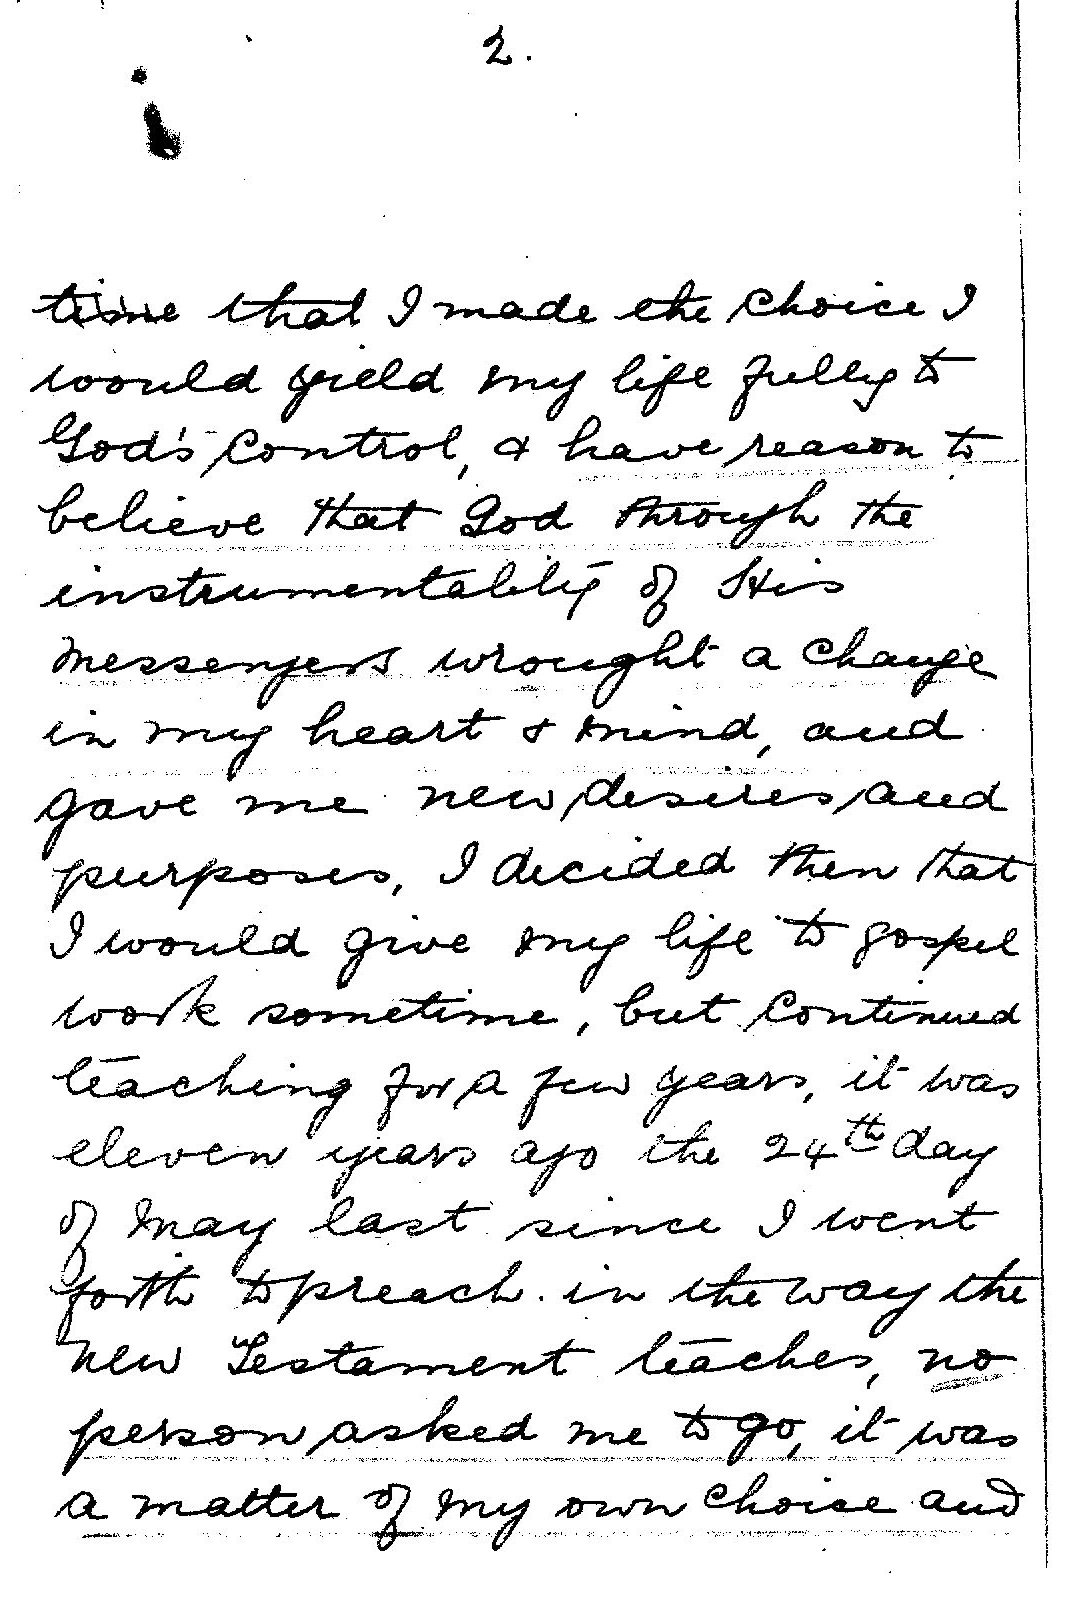 2.
time that I made the choice I
would yield my life fully to
God's control, & have reason to
believe that God through the
instrumentality of His
messengers wrought a change
in my heart & mind, and
gave me new desires and
purposes, I decided then that
I would give my life to gospel
work sometime, but continued
teaching for a few years, it was
eleven years ago the 24th day
of May last since I went
forth to preach in the way the
New Testament teaches, no
person asked me to go, it was
a matter of my own choice and